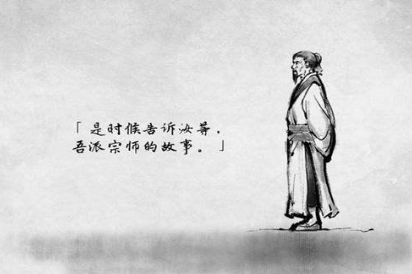 「是时候告诉汝等，
吾派宗师的故事。」